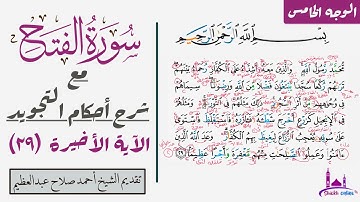 الوجه الخامس
سورة الفتح
مع
شرح أحكام التجويد
الآية الأخيرة (٢٩)
تقديم الشيخ أحمد صلاح عبدالعظيم
بِسْمِ اللَّهِ الرَّحْمَٰنِ الرَّحِيمِ
مُّحَمَّدٌ رَّسُولُ اللَّهِ وَالَّذِينَ مَعَهُ أَشِدَّاءُ عَلَى الْكُفَّارِ رُحَمَاءُ بَيْنَهُمْ
تَرَاهُمْ رُكَّعًا سُجَّدًا يَبْتَغُونَ فَضْلًا مِّنَ اللَّهِ وَرِضْوَانًا سِيمَاهُمْ
فِي وُجُوهِهِم مِّنْ أَثَرِ السُّجُودِ ذَٰلِكَ مَثَلُهُمْ فِي التَّوْرَاةِ وَمَثَلُهُمْ
فِي الْإِنجِيلِ كَزَرْعٍ أَخْرَجَ شَطْأَهُ فَآزَرَهُ فَاسْتَغْلَظَ فَاسْتَوَىٰ
عَلَىٰ سُوقِهِ يُعْجِبُ الزُّرَّاعَ لِيَغِيظَ بِهِمُ الْكُفَّارَ وَعَدَ اللَّهُ الَّذِينَ
آمَنُوا وَعَمِلُوا الصَّالِحَاتِ مِنْهُم مَّغْفِرَةً وَأَجْرًا عَظِيمًا ٢٩